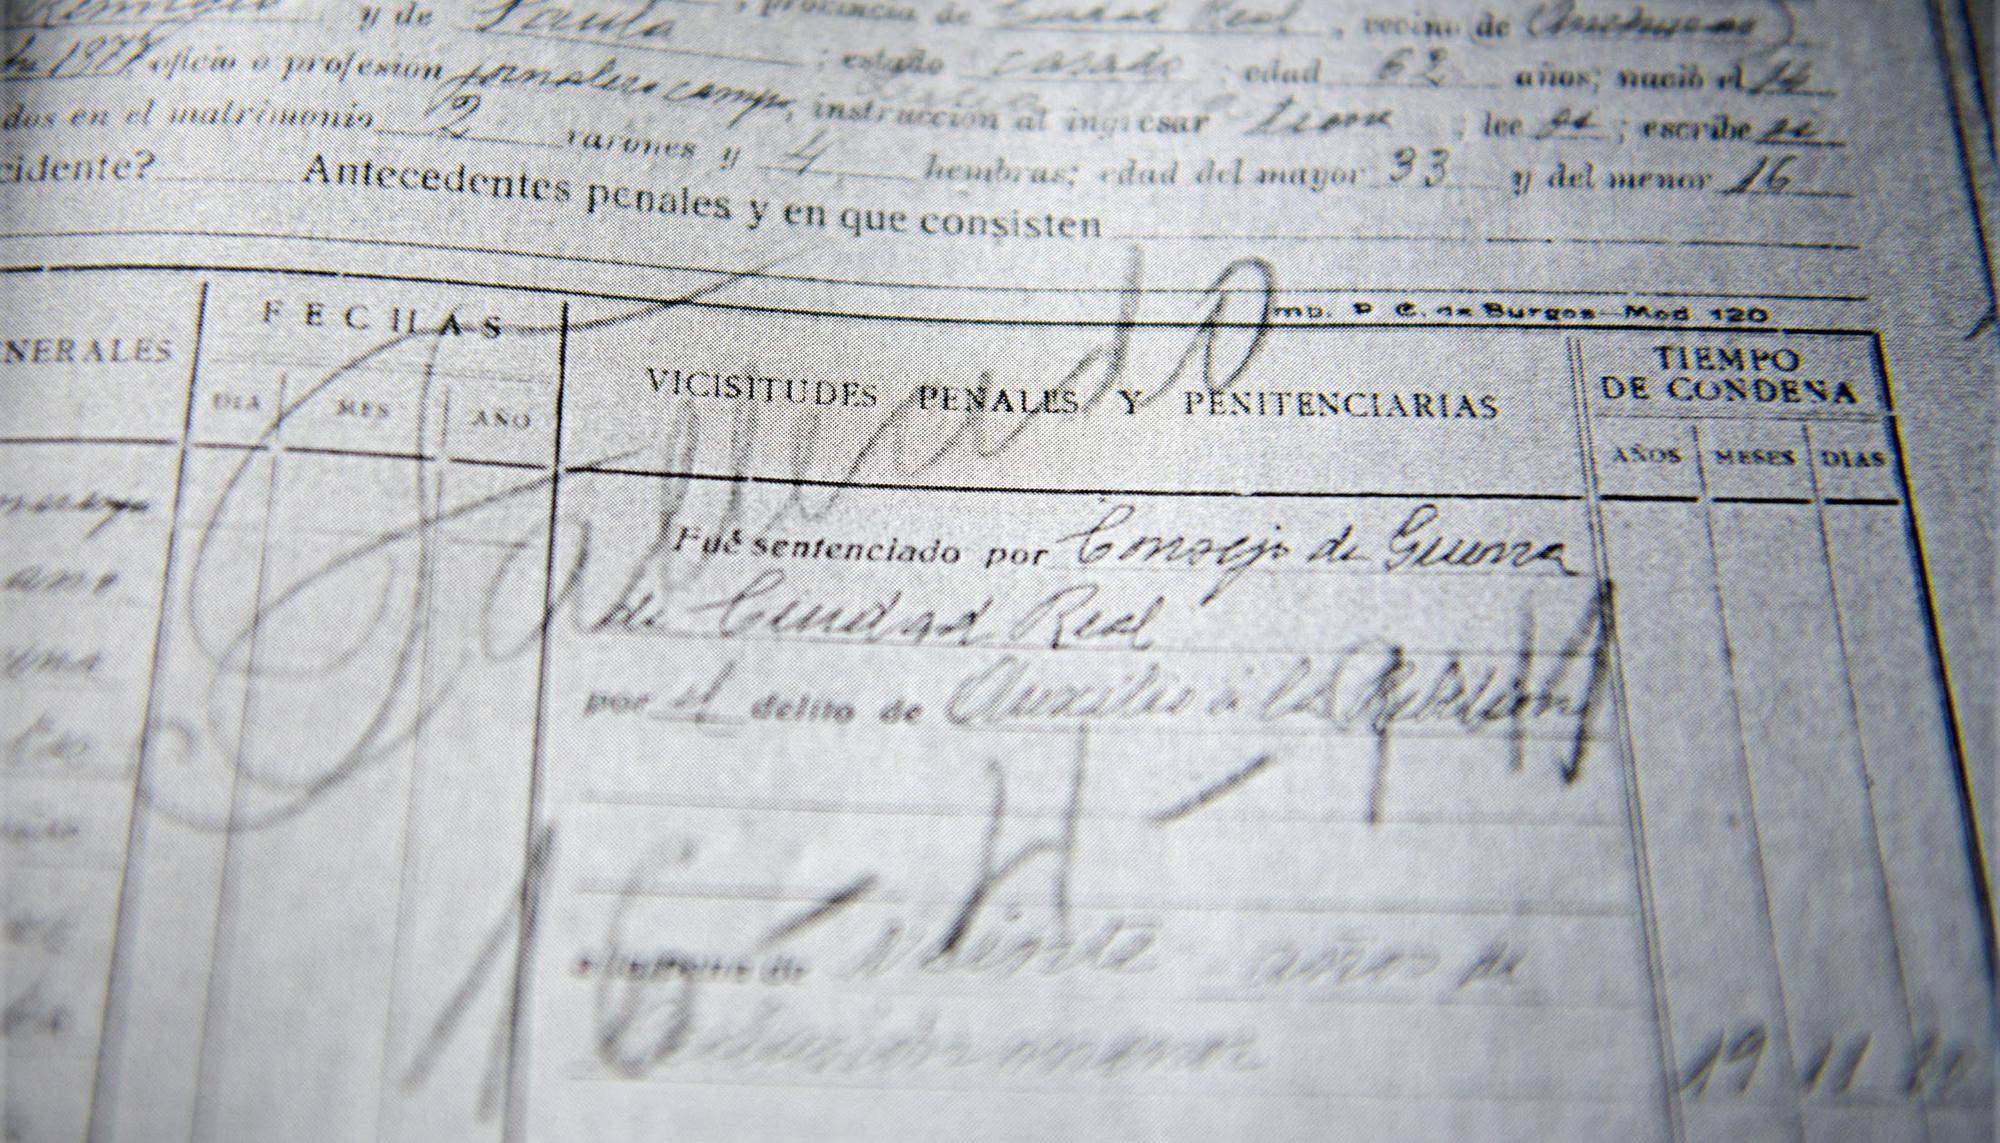 Remigio y de Paula, provincia de Ciudad Real, vecino de
de 1878 oficio o profesión jornalero campo; estado casado; edad 62 años; nació el 14
dos en el matrimonio 2 varones y 4 hembras; instrucción al ingresar tiene; lee si; escribe si
cidente? edad del mayor 33 y del menor 16
Antecedentes penales y en que consisten
Imp. P. C. de Burgos—Mod 120
NERALES FECHAS VICISITUDES PENALES Y PENITENCIARIAS TIEMPO
DE CONDENA
DIA MES AÑO AÑOS MESES DIAS
Fallecido
Fué sentenciado por Consejo de Guerra
de Ciudad Real
por el delito de Auxilio a la Rebelión
16-4-41
a la pena de veinte años de
reclusión menor
19 11